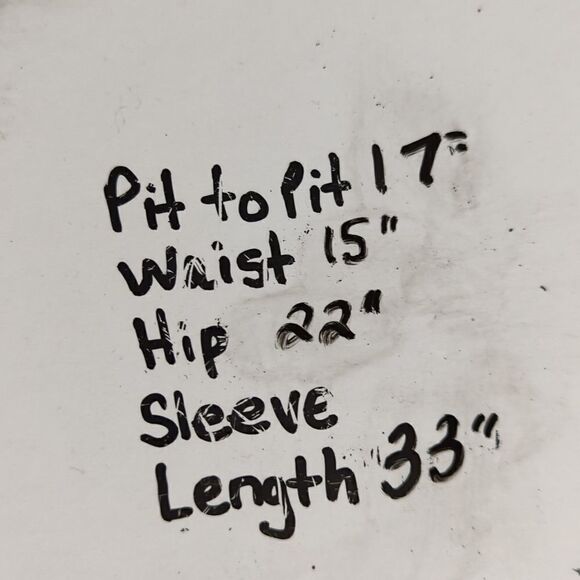 Pit to Pit 17"
Waist 15"
Hip 22"
Sleeve
Length 33"